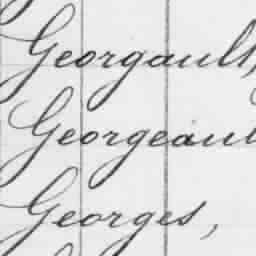 Georgault,
Georgeaul
Georges,